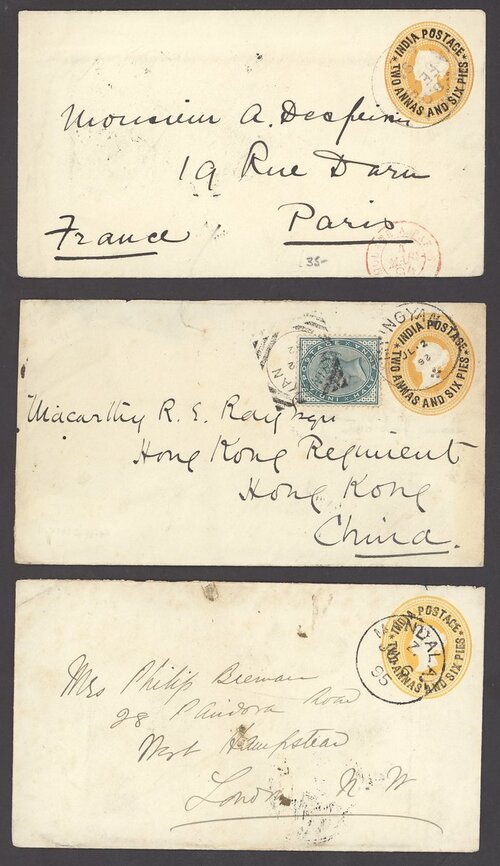 * INDIA POSTAGE *
TWO ANNAS AND SIX PIES
Monsieur A.
19 Rue Daru
Paris
France
35-
* INDIA POSTAGE *
TWO ANNAS AND SIX PIES
INGYAN
JL-2
92
Macarthy R. E. Ray Esqr
Hong Kong Regiment
Hong Kong
China.
* INDIA POSTAGE *
TWO ANNAS AND SIX PIES
95
Mrs Philip Beeman
28 Pandora Road
West Hampstead
London N. W